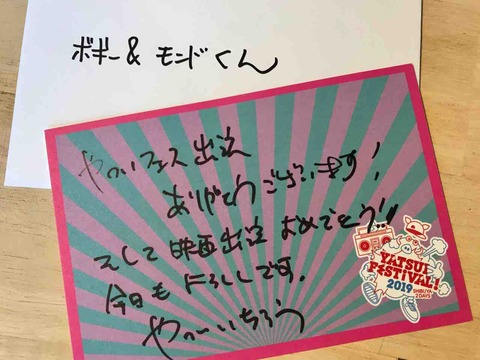 ボギー & モンドくん
やついフェス出演
ありがとうございます!
そして映画出演おめでとう!!
今日もよろしくです。
やついいちろう
YATSUI
FESTIVAL!
2019
SHIBUYA
2DAYS